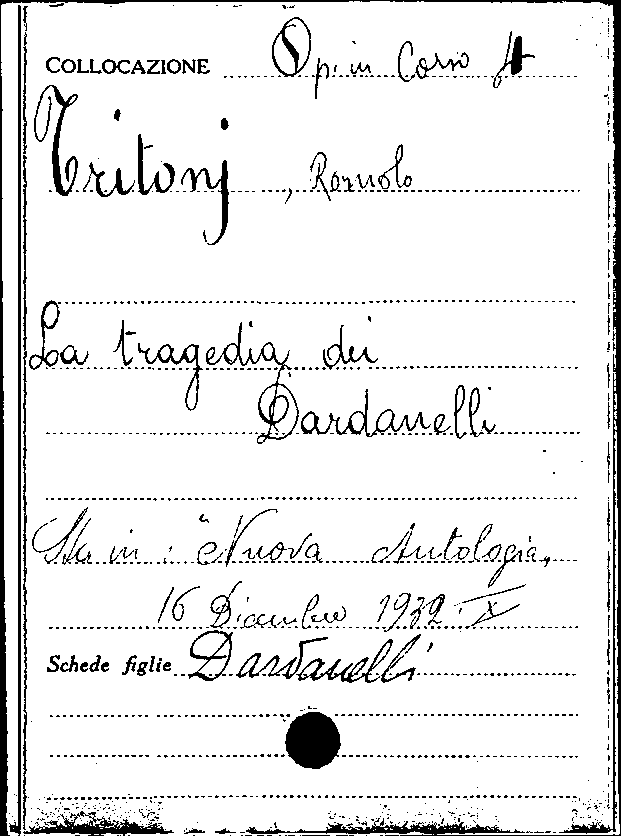 COLLOCAZIONE Op. in Corso
Tritonj, Romolo
La tragedia dei
Dardanelli
Sta in: "Nuova Antologia„
16 Dicembre 1932-X
Schede figlie Dardanelli